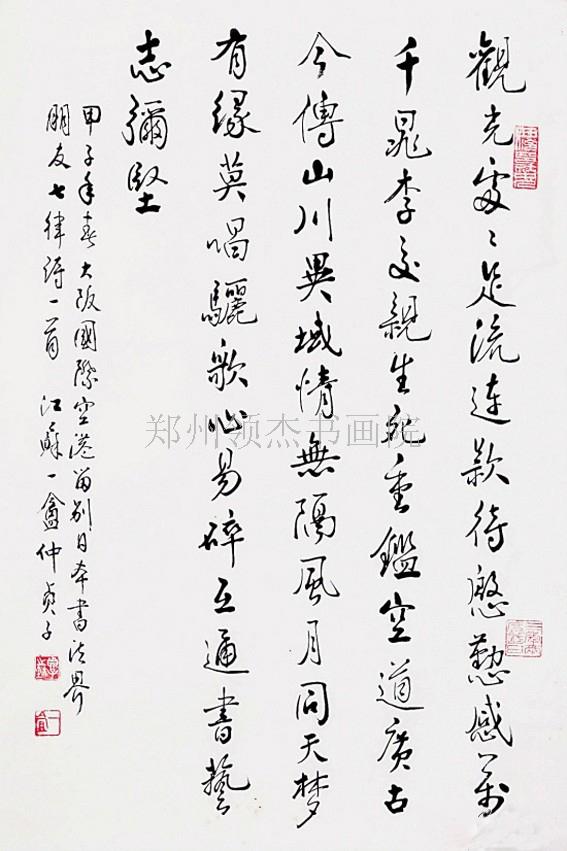 觀光處〻足流連款待慇懃感萬
千晁李交親生死重鑑空道廣古
今傳山川異域情無隔風月同天夢
有緣莫唱驪歌心易碎互通書藝
志彌堅
甲子年春大阪國際空港留別日本書法界
朋友七律詩一首 江蘇一盦仲貞子
郑州领杰书画院